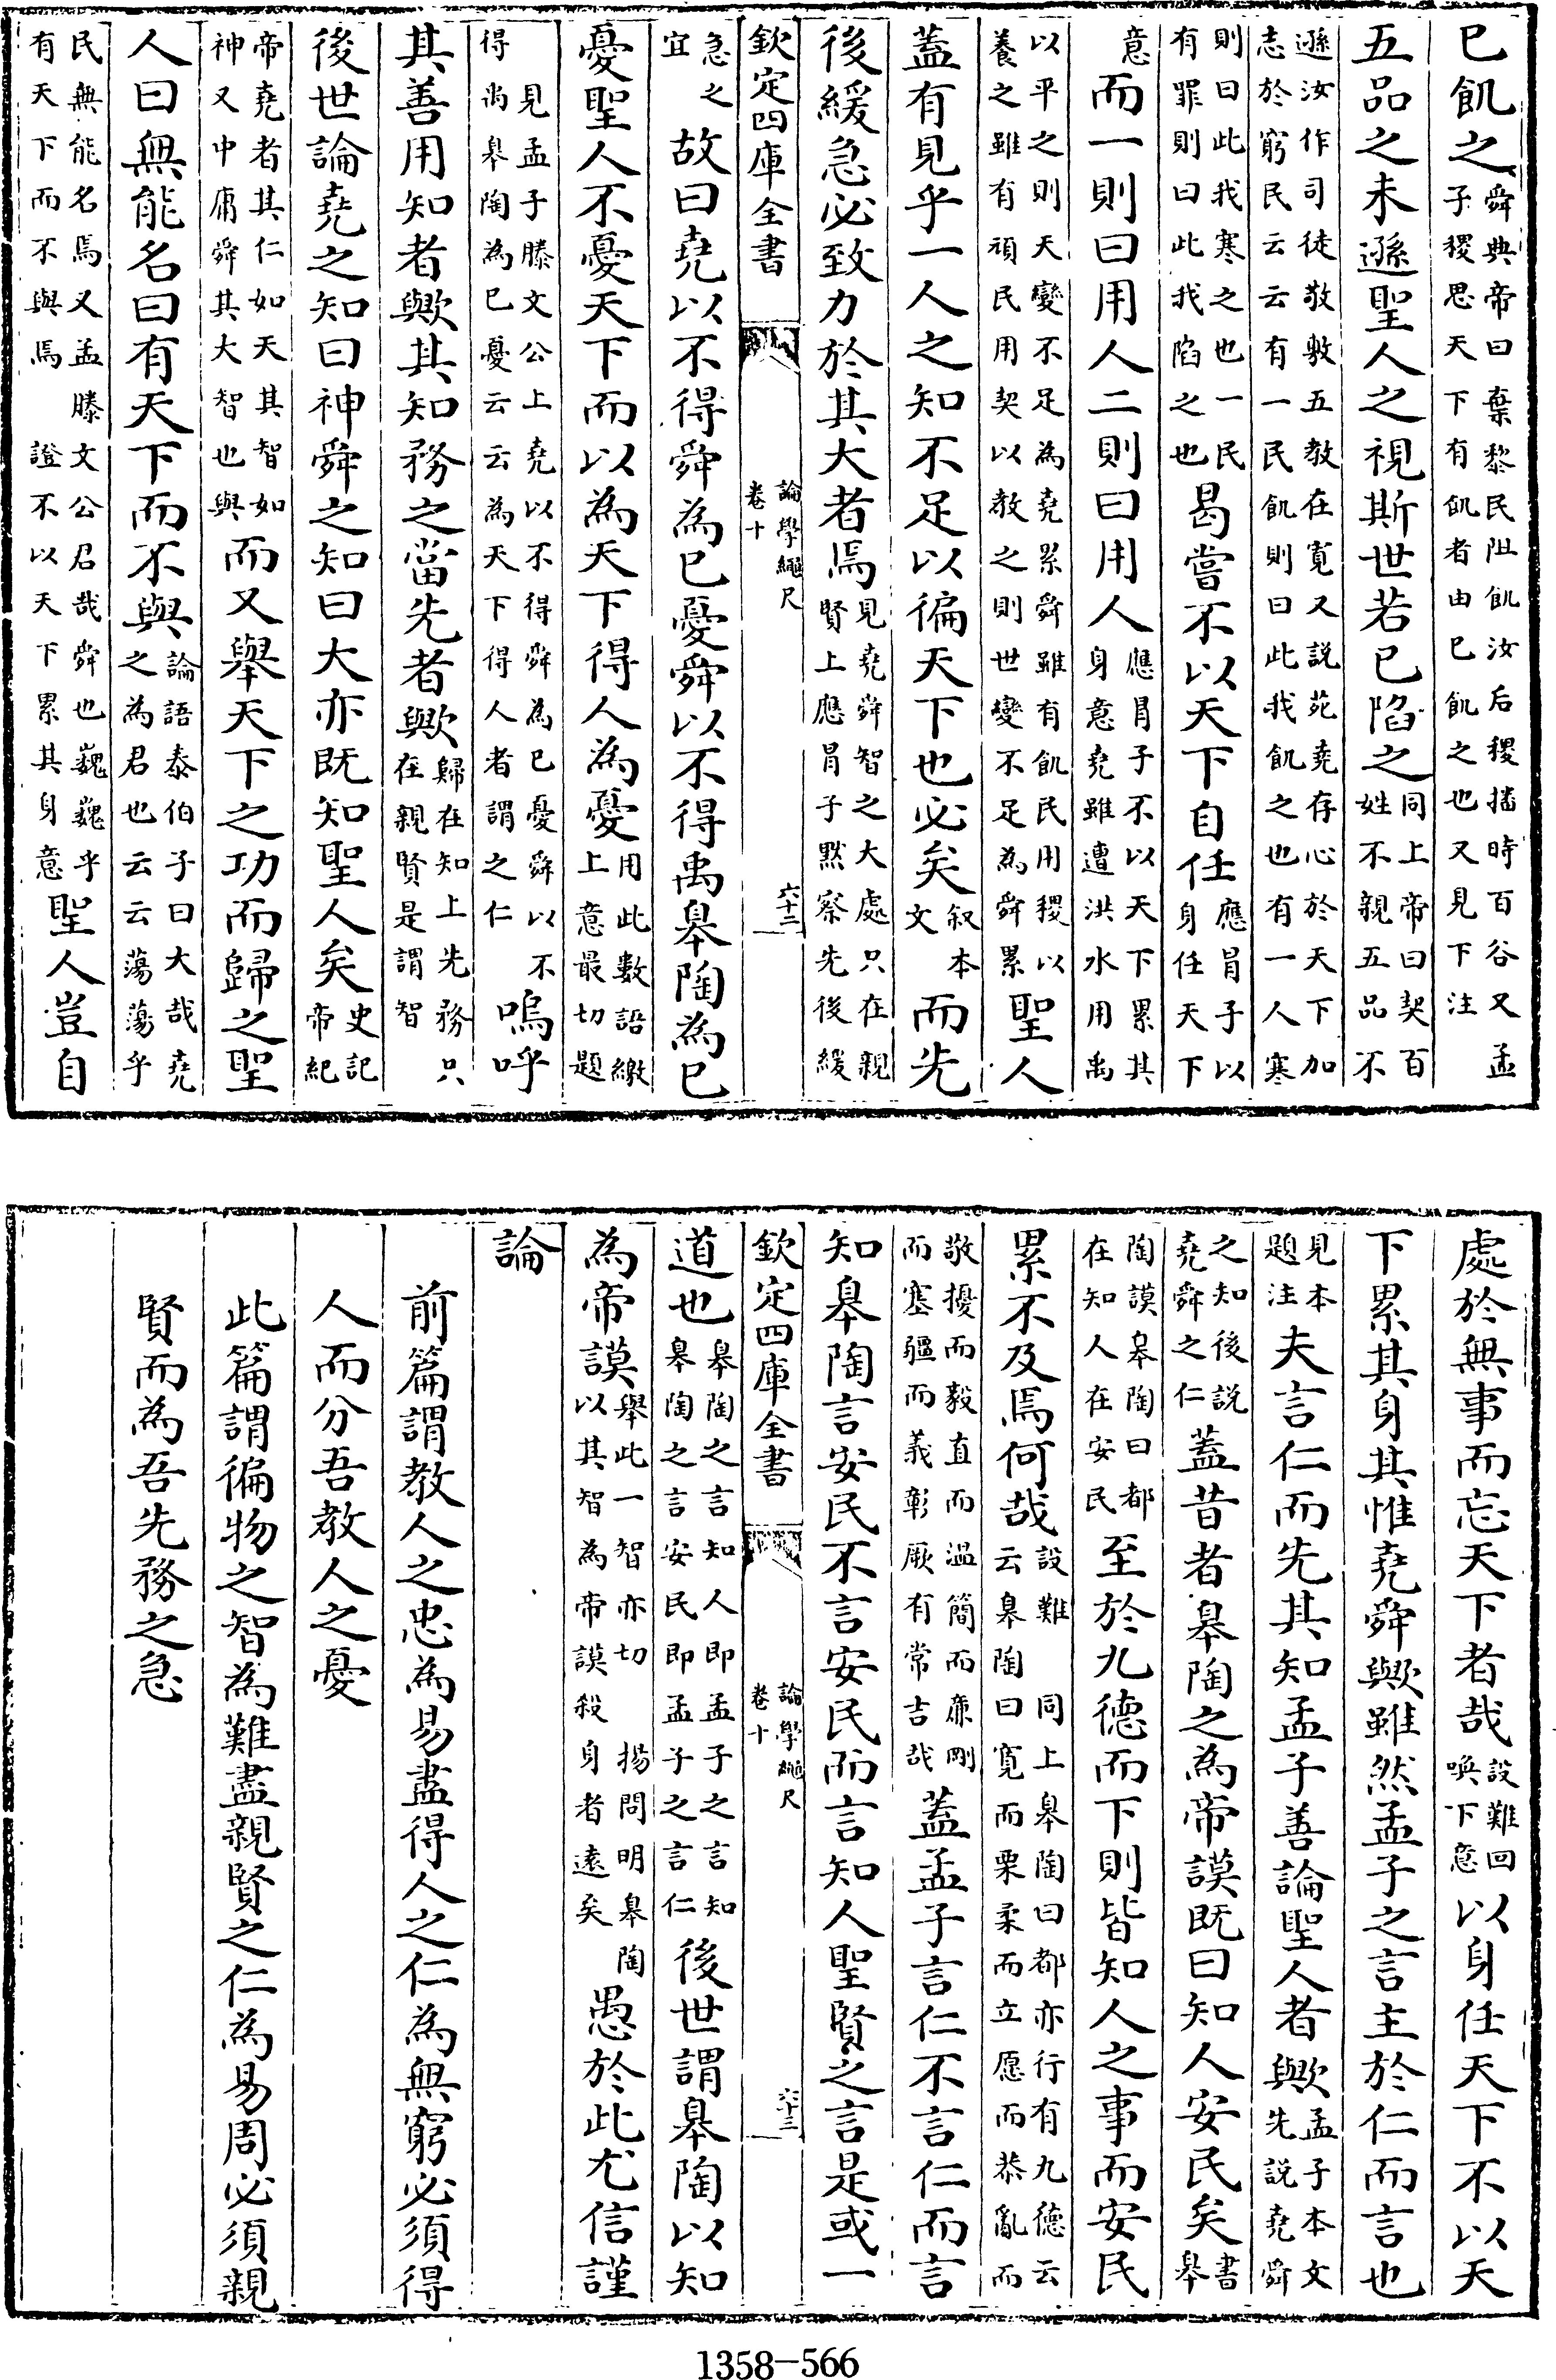 已飢之舜典帝曰棄黎民阻飢汝后稷播時百谷又孟
子稷思天下有飢者由已飢之也又見下注
五品之未遜聖人之視斯世若已陷之同上帝曰契百
姓不親五品不
遜汝作司徒敬敷五教在寛又説苑堯存心於天下加
志於窮民云云有一民飢則曰此我飢之也有一人寒
則曰此我寒之也一民
有罪則曰此我陷之也曷嘗不以天下自任應冒子以
身任天下
意而一則曰用人二則曰用人應冒子不以天下累其
身意堯雖遭洪水用禹
以平之則天變不足為堯累舜雖有飢民用稷以
養之雖有頑民用契以教之則世變不足為舜累聖人
蓋有見乎一人之知不足以徧天下也必矣叙本
文而先
後緩急必致力於其大者焉見堯舜智之大處只在親
賢上應冒子黙察先後緩
欽定四庫全書
論學繩尺
卷十
六十二
急之
宜故曰堯以不得舜為已憂舜以不得禹臯陶為已
憂聖人不憂天下而以為天下得人為憂用此數語繳
上意最切題
見孟子滕文公上堯以不得舜為已憂舜以不
得禹臯陶為已憂云云為天下得人者謂之仁嗚呼
其善用知者歟其知務之當先者歟歸在知上先務只
在親賢是謂智
後世論堯之知曰神舜之知曰大亦既知聖人矣史記
帝紀
帝堯者其仁如天其智如
神又中庸舜其大智也與而又舉天下之功而歸之聖
人曰無能名曰有天下而不與論語泰伯子曰大哉堯
之為君也云云蕩蕩乎
民無能名焉又孟滕文公君哉舜也巍巍乎
有天下而不與焉證不以天下累其身意聖人豈自
處於無事而忘天下者哉設難回
喚下意以身任天下不以天
下累其身其惟堯舜歟雖然孟子之言主於仁而言也
見本
題注夫言仁而先其知孟子善論聖人者歟孟子本文
先説堯舜
之知後説
堯舜之仁蓋昔者臯陶之為帝謨既曰知人安民矣書
臯
陶謨臯陶曰都
在知人在安民至於九德而下則皆知人之事而安民
累不及焉何哉設難
云同上臯陶曰都亦行有九德云
臯陶曰寛而栗柔而立愿而恭亂而
敬擾而毅直而温簡而亷剛
而塞彊而義彰厥有常吉哉蓋孟子言仁不言仁而言
知臯陶言安民不言安民而言知人聖賢之言是或一
欽定四庫全書
論學繩尺
卷十
六十三
道也臯陶之言知人即孟子之言知
臯陶之言安民即孟子之言仁後世謂臯陶以知
為帝謨舉此一智亦切揚問明臯陶
以其智為帝謨殺身者遠矣愚於此尤信謹
論
前篇謂教人之忠為易盡得人之仁為無窮必須得
人而分吾教人之憂
此篇謂徧物之智為難盡親賢之仁為易周必須親
賢而為吾先務之急
1358-566